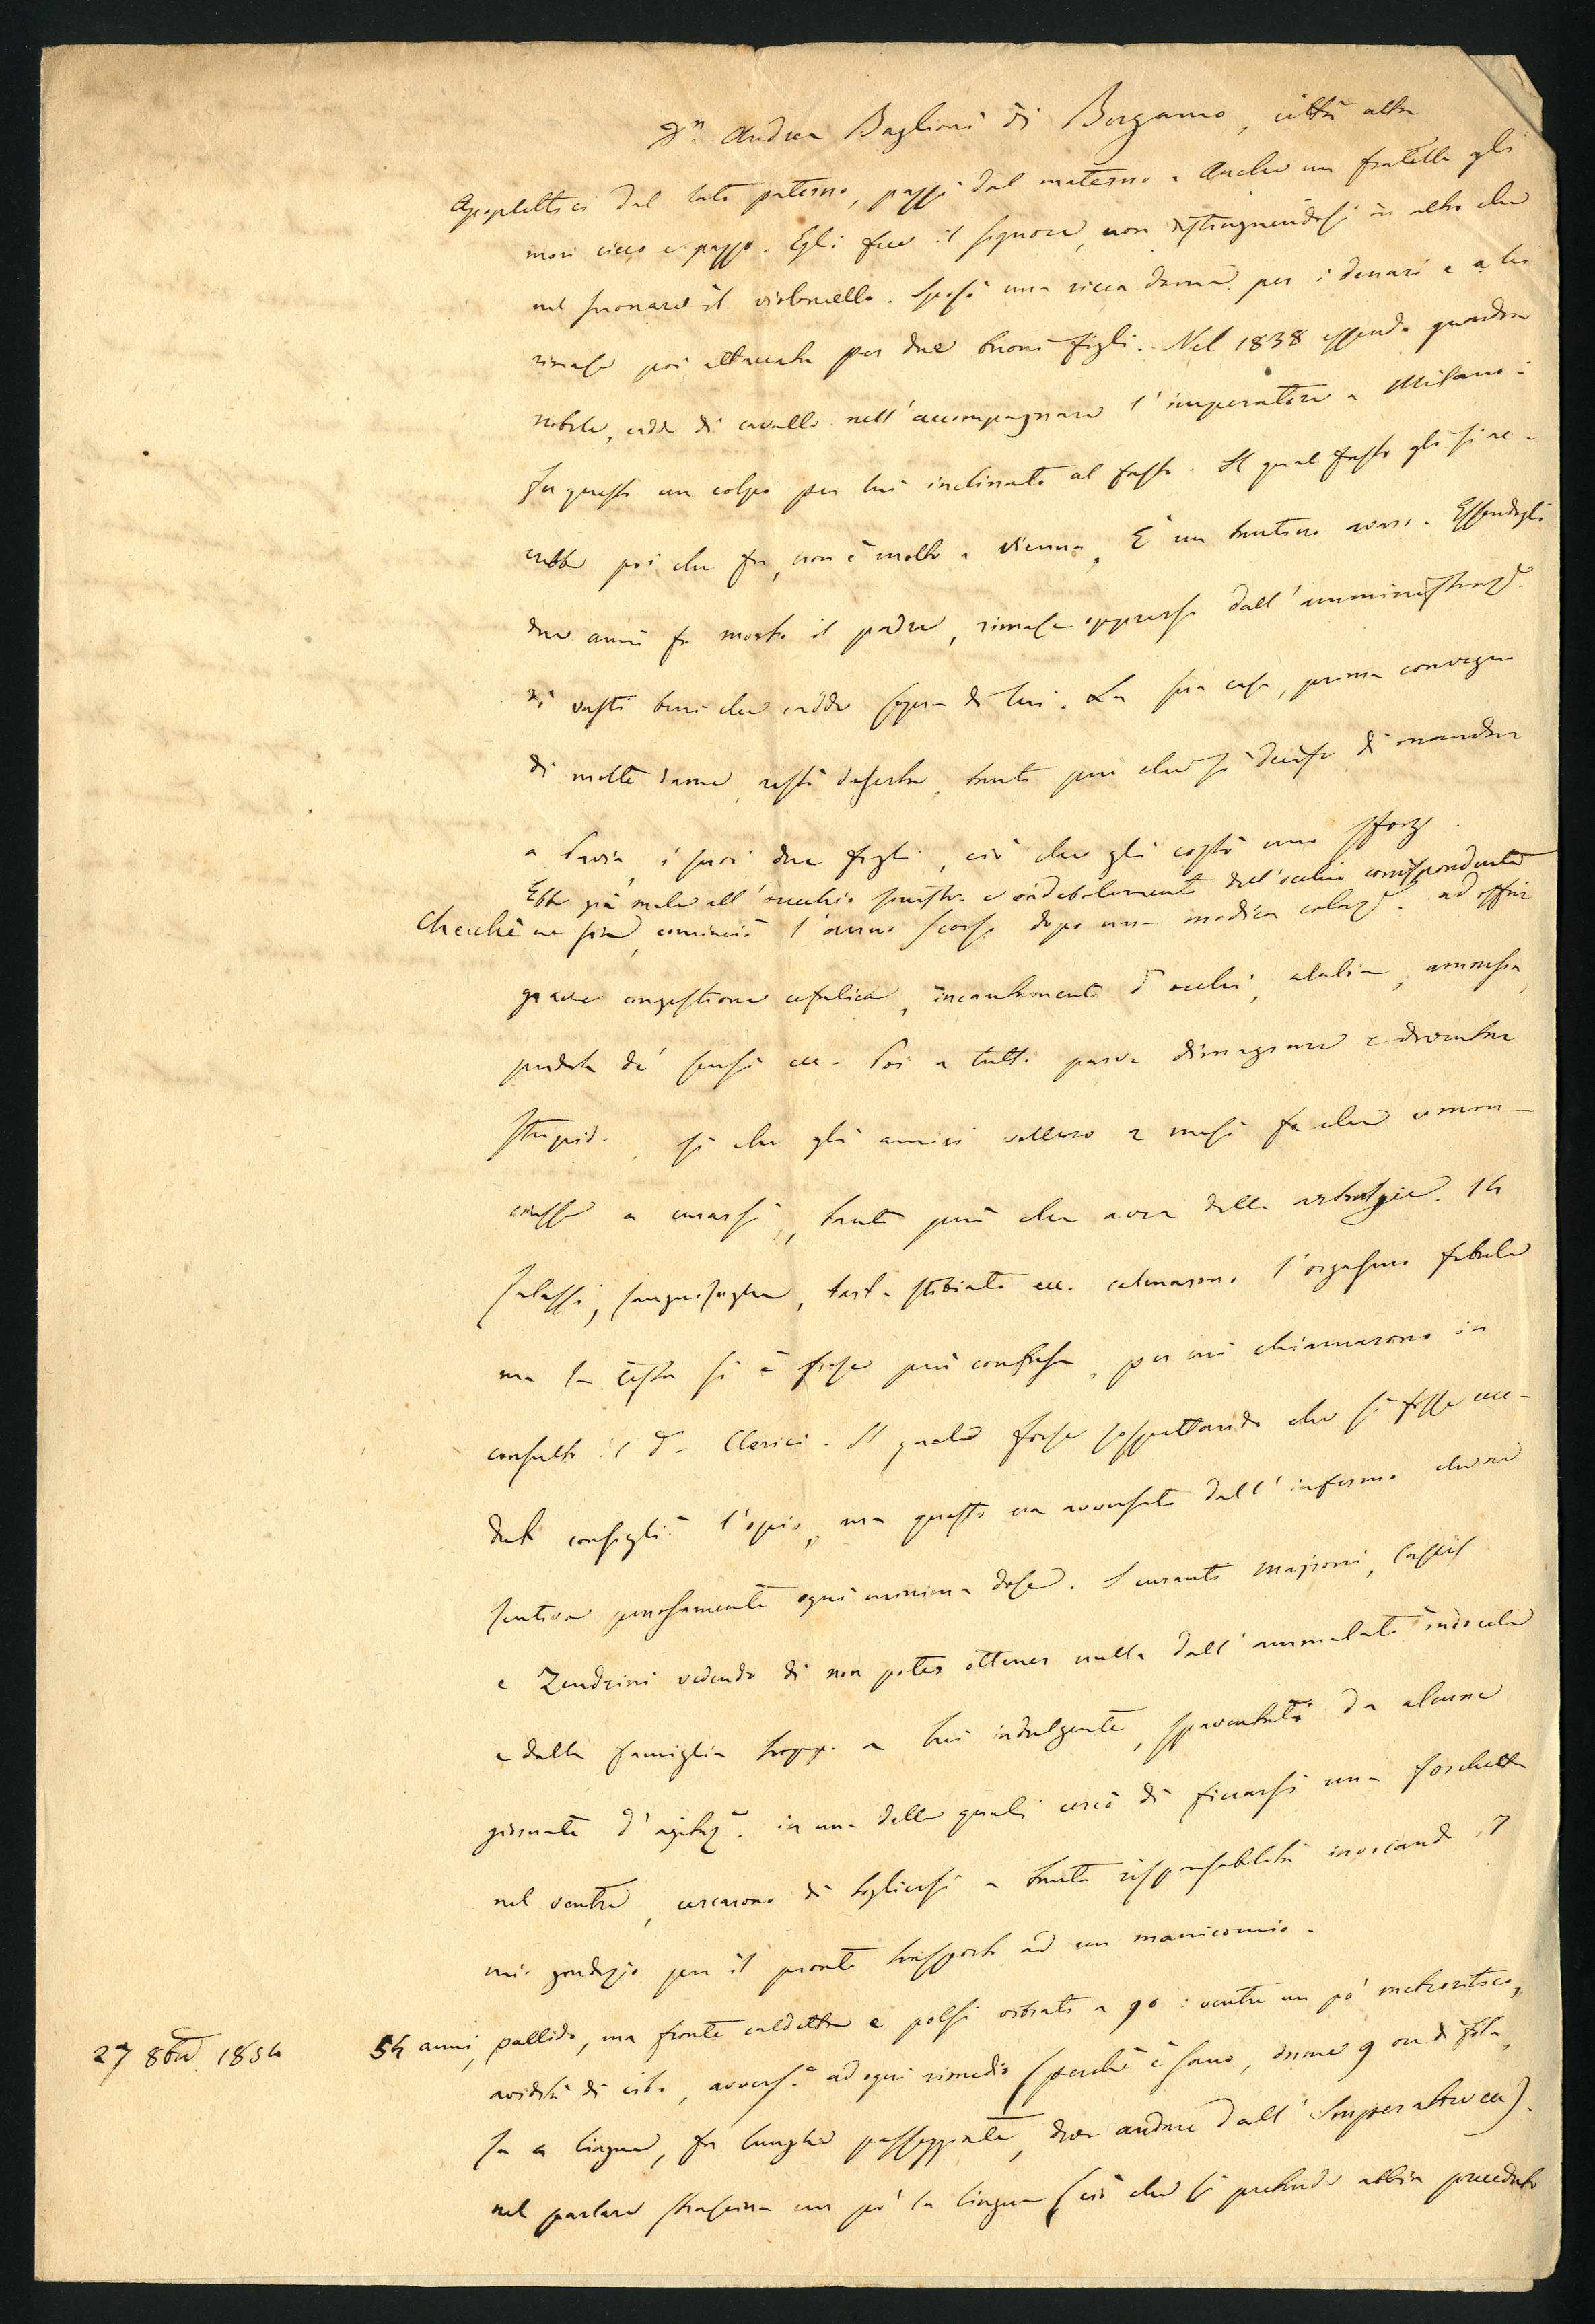 Dn. Andrea Baglioni di Bergamo, città alta
Apoplettici dal lato paterno, pazzi dal materno. Anche un fratello gli
morì cieco e pazzo. Egli fece il signore, non distinguendosi in altro che
nel suonare il violoncello. Sposò una ricca dama per i denari e a lei
rimase poi attaccato per due buoni figli. Nel 1838 essendo guardia
nobile, cadde di cavallo nell'accompagnare l'imperatore a Milano:
fu questo un colpo per lui inclinato al fasto. Il qual fasto gli si ac-
crebbe poi che fu, non è molto a Vienna. È un tantino avaro. Essendogli
due anni fa morto il padre, rimase oppresso dall'amministraze.
di vasti beni che cadde sopra di lui. La sua casa, prima convegno
di molte dame, restò deserta, tanto più che si decise di mandare
a Pavia i suoi due figli, ciò che gli costò uno sforzo
Ebbe già male all'orecchio sinistro e indebolimento dell'occhio corrispondente
Checchè ne sia, cominciò l'anno scorso dopo una modica colaze. ad offrir
grave congestione cefalica, incantamento d'occhi, alalia, amnesia,
perdita de' sensi ecc. Poi a tutti parve dimagrare e diventar
stupido, sì che gli amici vollero 2 mesi fa che comin-
ciasse a curarsi, tanto più che avea delle artralgie. 14
salassi, sanguisughe, tart. stibiato ecc. calmarono l'orgasmo febrile
ma la testa si è forse più confusa, per cui chiamarono in
consulto il d. Clerici. Il quale forse sospettando che si fosse ecce-
duto consigliò l'opio, ma questo era avversato dall'infermo che ne
sentiva penosamente ogni minima dose. I curanti Masironi,
e Zendrini vedendo di non poter ottener nulla dall'ammalato indocile
e dalla famiglia troppo a lui indulgente, spaventati da alcune
giornate d'agitaze. in una delle quali cercò di ficcarsi una forchetta
nel ventre, cercarono di togliersi a tanta responsabilità invocando il
mio giudizio per il pronto trasporto ad un manicomio.
27 8bre 1854 54 anni, pallido, ma fronte caldetta e polsi vibrati a 90: ventre un po' meteoritico,
avidità di cibo, avverso ad ogni rimedio (perchè è sano, dorme 9 ore di fila,
fa la lingua, fa lunghe passeggiate, deve andare dall'Imperatrice ecc.).
nel parlare strascina un po' la lingua (ciò che si pretende abbia preceduto